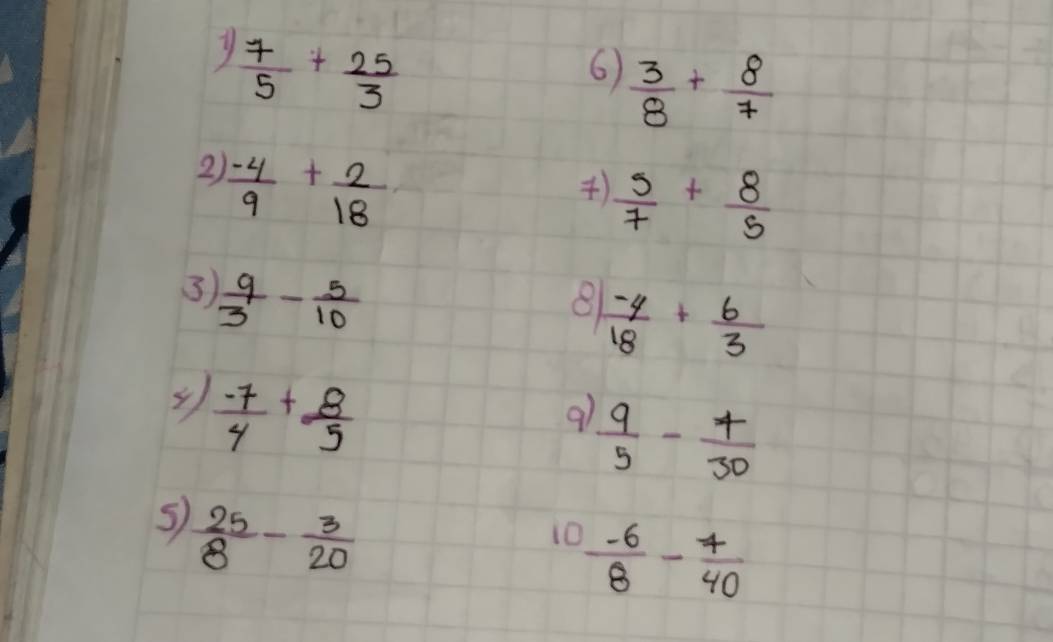 1) 7/5 + 25/3
2) -4/9 + 2/18
3) 9/3 - 5/10
4) -7/4 + 8/5
5) 25/8 - 3/20
6) 3/8 + 8/7
7) 5/7 + 8/5
8) -4/18 + 6/3
9) 9/5 - 7/30
10 -6/8 - 7/40